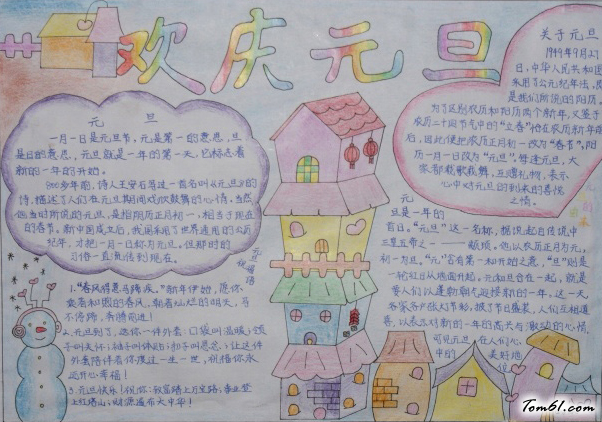 欢庆元旦
元 旦
一月一日是元旦节,元是第一的意思,旦
是日的意思,元旦就是一年的第一天,它标志着
新的一年的开始。
900多年前,诗人王安石写过一首名叫《元旦》的
诗,描述了人们在元旦期间欢欣鼓舞的心情,当然
他当时所说的元旦,是指阴历正月初一,相当于现在
的春节,新中国成立后,我国采用了世界通用的公历
纪年,才把一月一日称为元旦,但那时的
习俗一直流传到现在。
元旦祝福语
1."春风得意马蹄疾。"新年伊始,愿你
乘着和煦的春风,朝着灿烂的明天,马
不停蹄,奔腾前进!
2.元旦到了,送你一件外套:口袋叫温暖;领
子叫关怀;袖子叫体贴;扣子叫思念;让这件
外套陪伴着你度过一生一世,祝福你永
远开心幸福!
3.元旦快乐!祝你:致富踏上万宝路;事业登
上红塔山;财源遍布大中华!
关于元旦
1949年9月27
日,中华人民共和国
采用了公元纪年法,即
是我们所说的阳历。
为了区别农历和阳历两个新年,又鉴于
农历二十四节气中的"立春"恰在农历新年前
后,因此便把农历正月初一改为"春节",阳
历一月一日改为"元旦"。每逢元旦,大
家都载歌载舞,互赠礼物,表示
心中对元旦的到来的喜悦
之情!
元
旦是一年的
首日,"元旦"这一名称,据说起自传说中
三皇五帝之一——颛顼,他以农历正月为元,
初一为旦,"元"含有第一和开始之意,"旦"则是
一轮红日从地面升起,元和旦合在一起,就是
要人们以蓬勃朝气迎接新的一年,这一天,
各家各户张灯节彩,披了节日盛装,人们互相道
喜,以表达对新的一年的高兴与激动的心情,
可见元旦在人们心
中的
美好地
位
Tom61.com